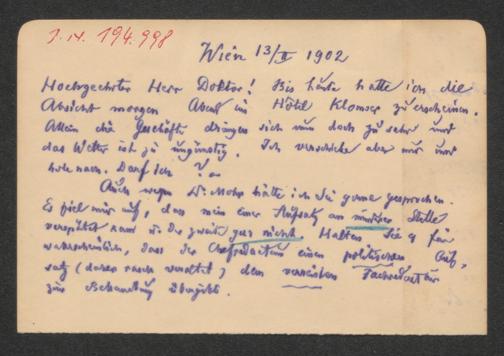 J. N. 194.998
Wien 13/II 1902
Hochgeehrter Herr Doktor! Bis heute hatte ich die
Absicht morgen Abend in Hôtel Klomser zu erscheinen.
Allein die Geschäfte drängen sich nun doch zu sehr und
das Wetter ist zu ungünstig. Ich verschiebe aber nur und
hole nach. Darf ich ?
Auch wegen Dr. Mohr hätte ich Sie gerne gesprochen.
Es fiel mir auf, dass mein einer Aufsatz an Stelle
verspätet kam u. der zweite gar nicht. Halten Sie es für
wahrscheinlich, dass der Chefredacteur einen politischen Auf-
satz (dazu noch veraltet) dem Fachredacteur
zur Behandlung übergibt.